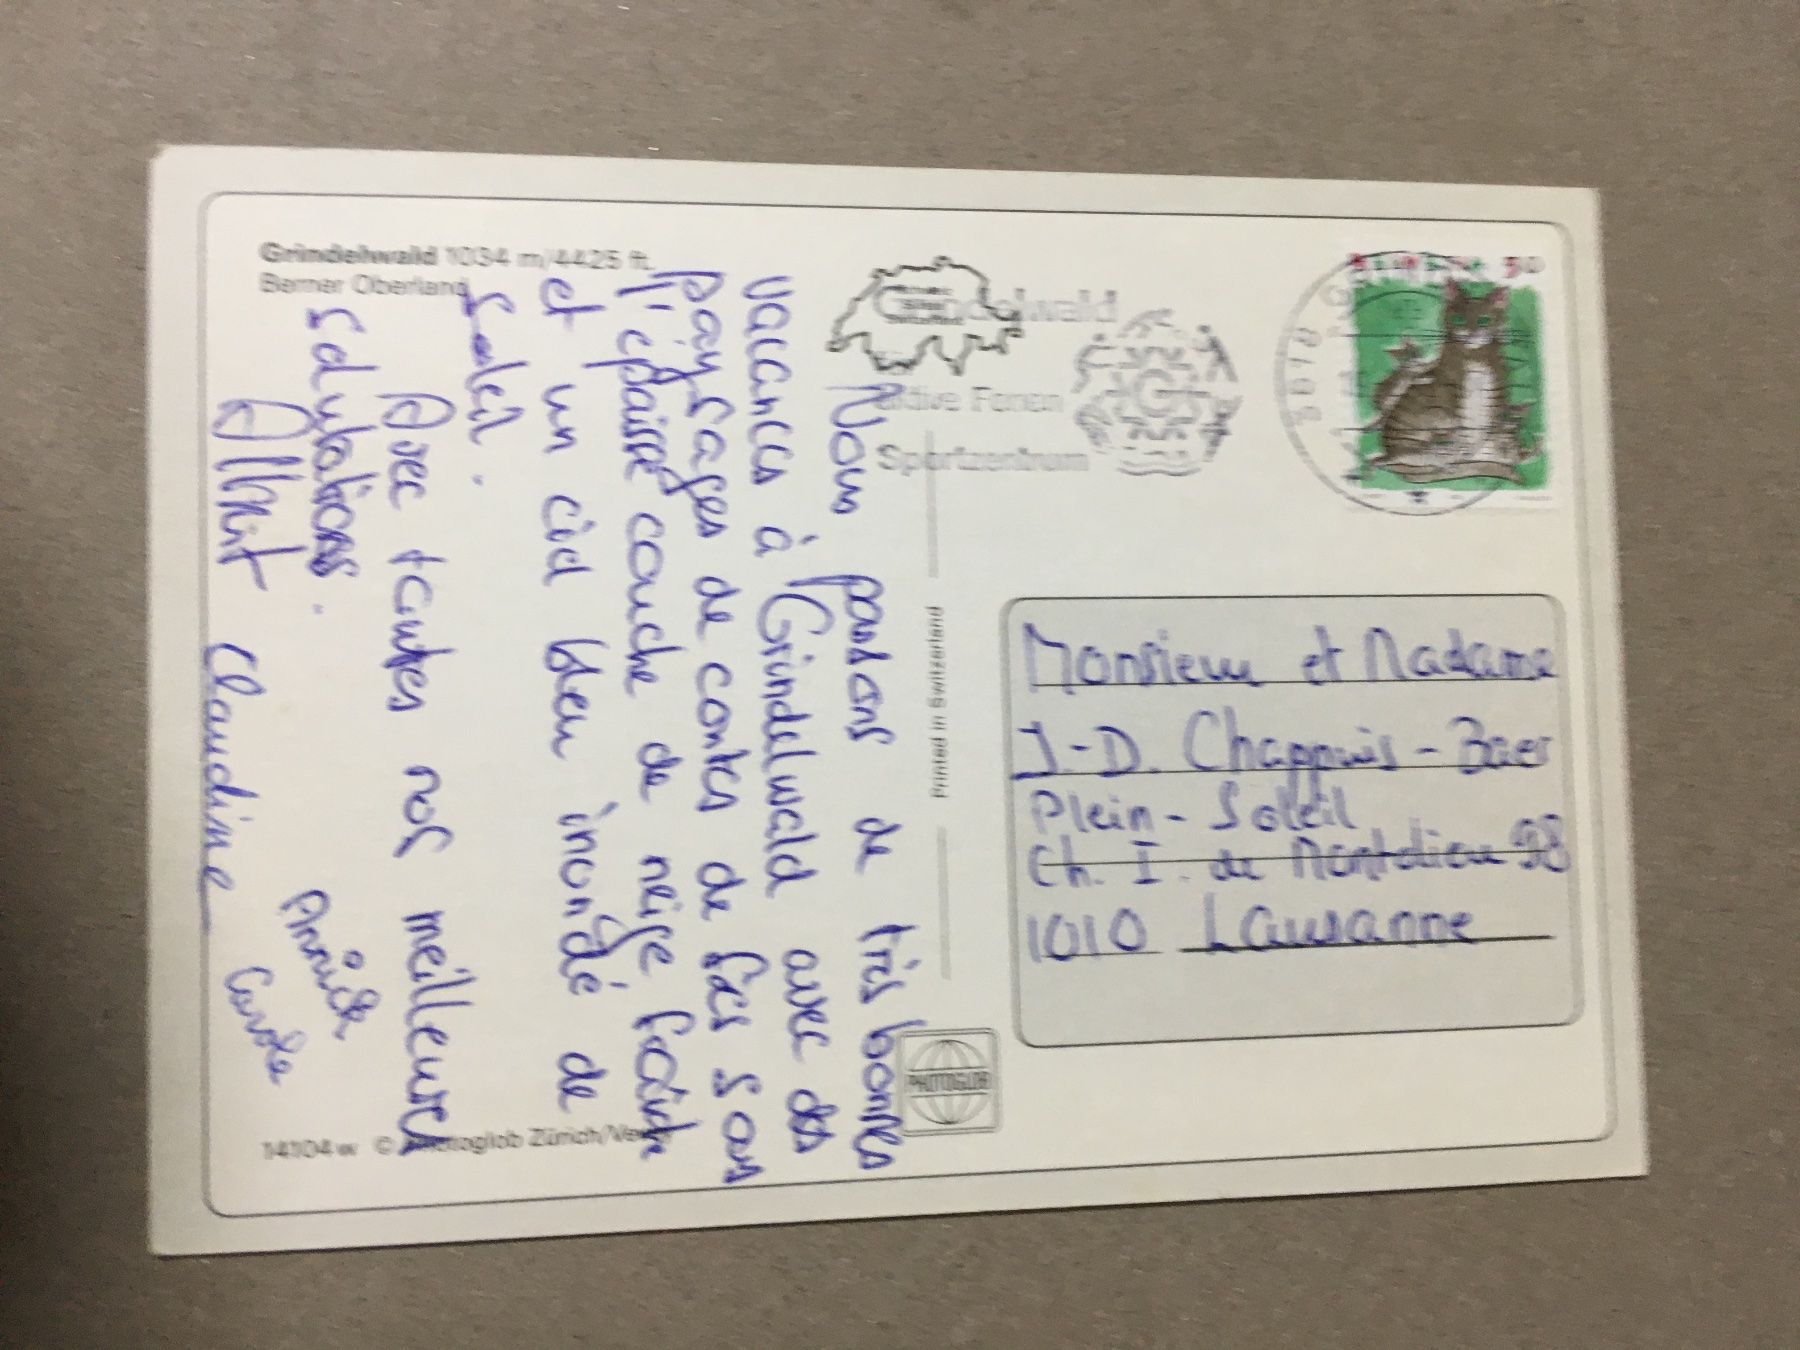 Grindelwald 1034 m/4425 ft.
Berner Oberland
Nous passons de très bonnes
vacances à Grindelwald avec des
paysages de contes de fées sous
l'épaisse couche de neige fraîche
et un ciel bleu inondé de
soleil.
Avec toutes nos meilleures
salutations.
Albert Claudine
Carole
14104 w © Photoglob Zürich/Vevey
Printed in Switzerland
PHOTOGLOB
Grindelwald
aktive Ferien
Sportzentrum
3818
HELVETIA 50
Monsieur et Madame
J.-D. Chappuis-Baer
Plein-Soleil
Ch. I. de Montolieu 98
1010 Lausanne